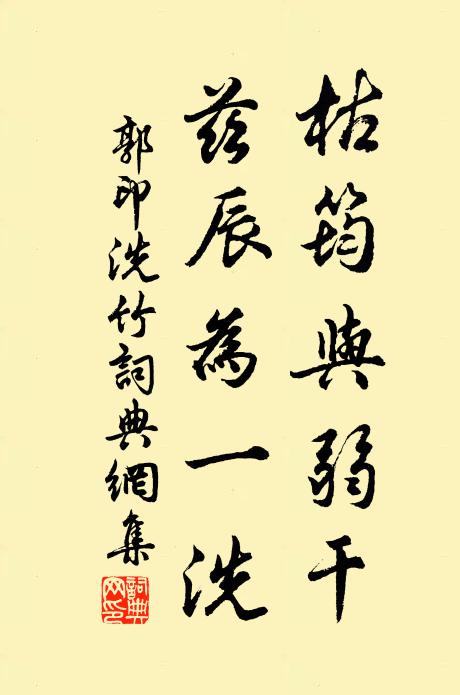 枯筠與弱干
茲辰為一洗
郭印洗竹詞典網集
詞典网印